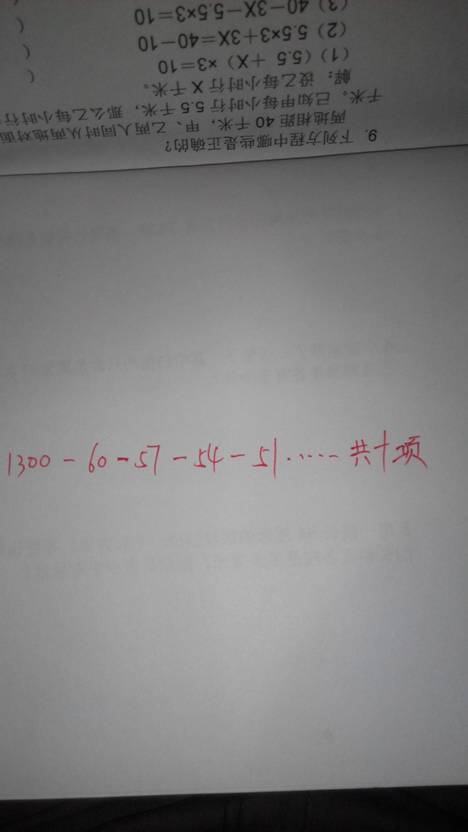 9. 下列方程中哪些是正确的？
两地相距 40 千米，甲、乙两人同时从两地对面
千米。已知甲每小时行 5.5 千米，那么乙每小时行
解：设乙每小时行 X 千米。
(1)（5.5 ＋X）×3＝10 (
(2) 5.5×3＋3X＝40－10 (
(3) 40－3X－5.5×3＝10 (
1300－60－57－54－51……共十项